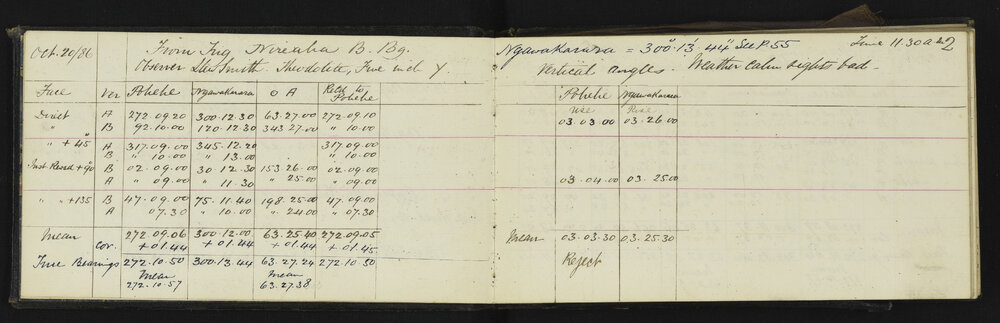 Oct. 20/86
From Trig Nireaha B. Bg.
Observer Ll. Smith. Theodolite, Five inch Y.
Face Ver Pohehe Ngawakarara O A Reck to Pohehe
Direct A 272.09.20 300.12.30 63.27.00 272.09.10
" B 92.10.00 120.12.30 343.27.00 " 10.00
" + 45 A 317.09.00 345.12.20 317.09.00
B " 10.00 " 13.00 . " 10.00
Inst Revsd + 90 B 02.09.00 30.12.30 153.26.00 02.09.00
A " 09.00 " 11.30 " 25.00 " 09.00
" " +135 B 47.09.00 75.11.40 198.25.00 47.09.00
A 07.30 " 10.00 " 24.00 " 07.30
Mean 272.09.06 300.12.00 63.25.40 272.09.05
Cor. +01.44 +01.44 +01.44 +01.45
True Bearings 272.10.50 300.13.44 63.27.24 272.10.50
Mean Mean
272.10.57 63.27.38
Ngawakarara = 300°.13'.44" See P. 55 Time 11.30 a.m. 2
Vertical angles. Weather calm sights bad.
Pohehe Ngawakarara
Rise Rise
03.03.00 03.26.00
03.04.00 03.25.00
Mean 03.03.30 03.25.30
Reject